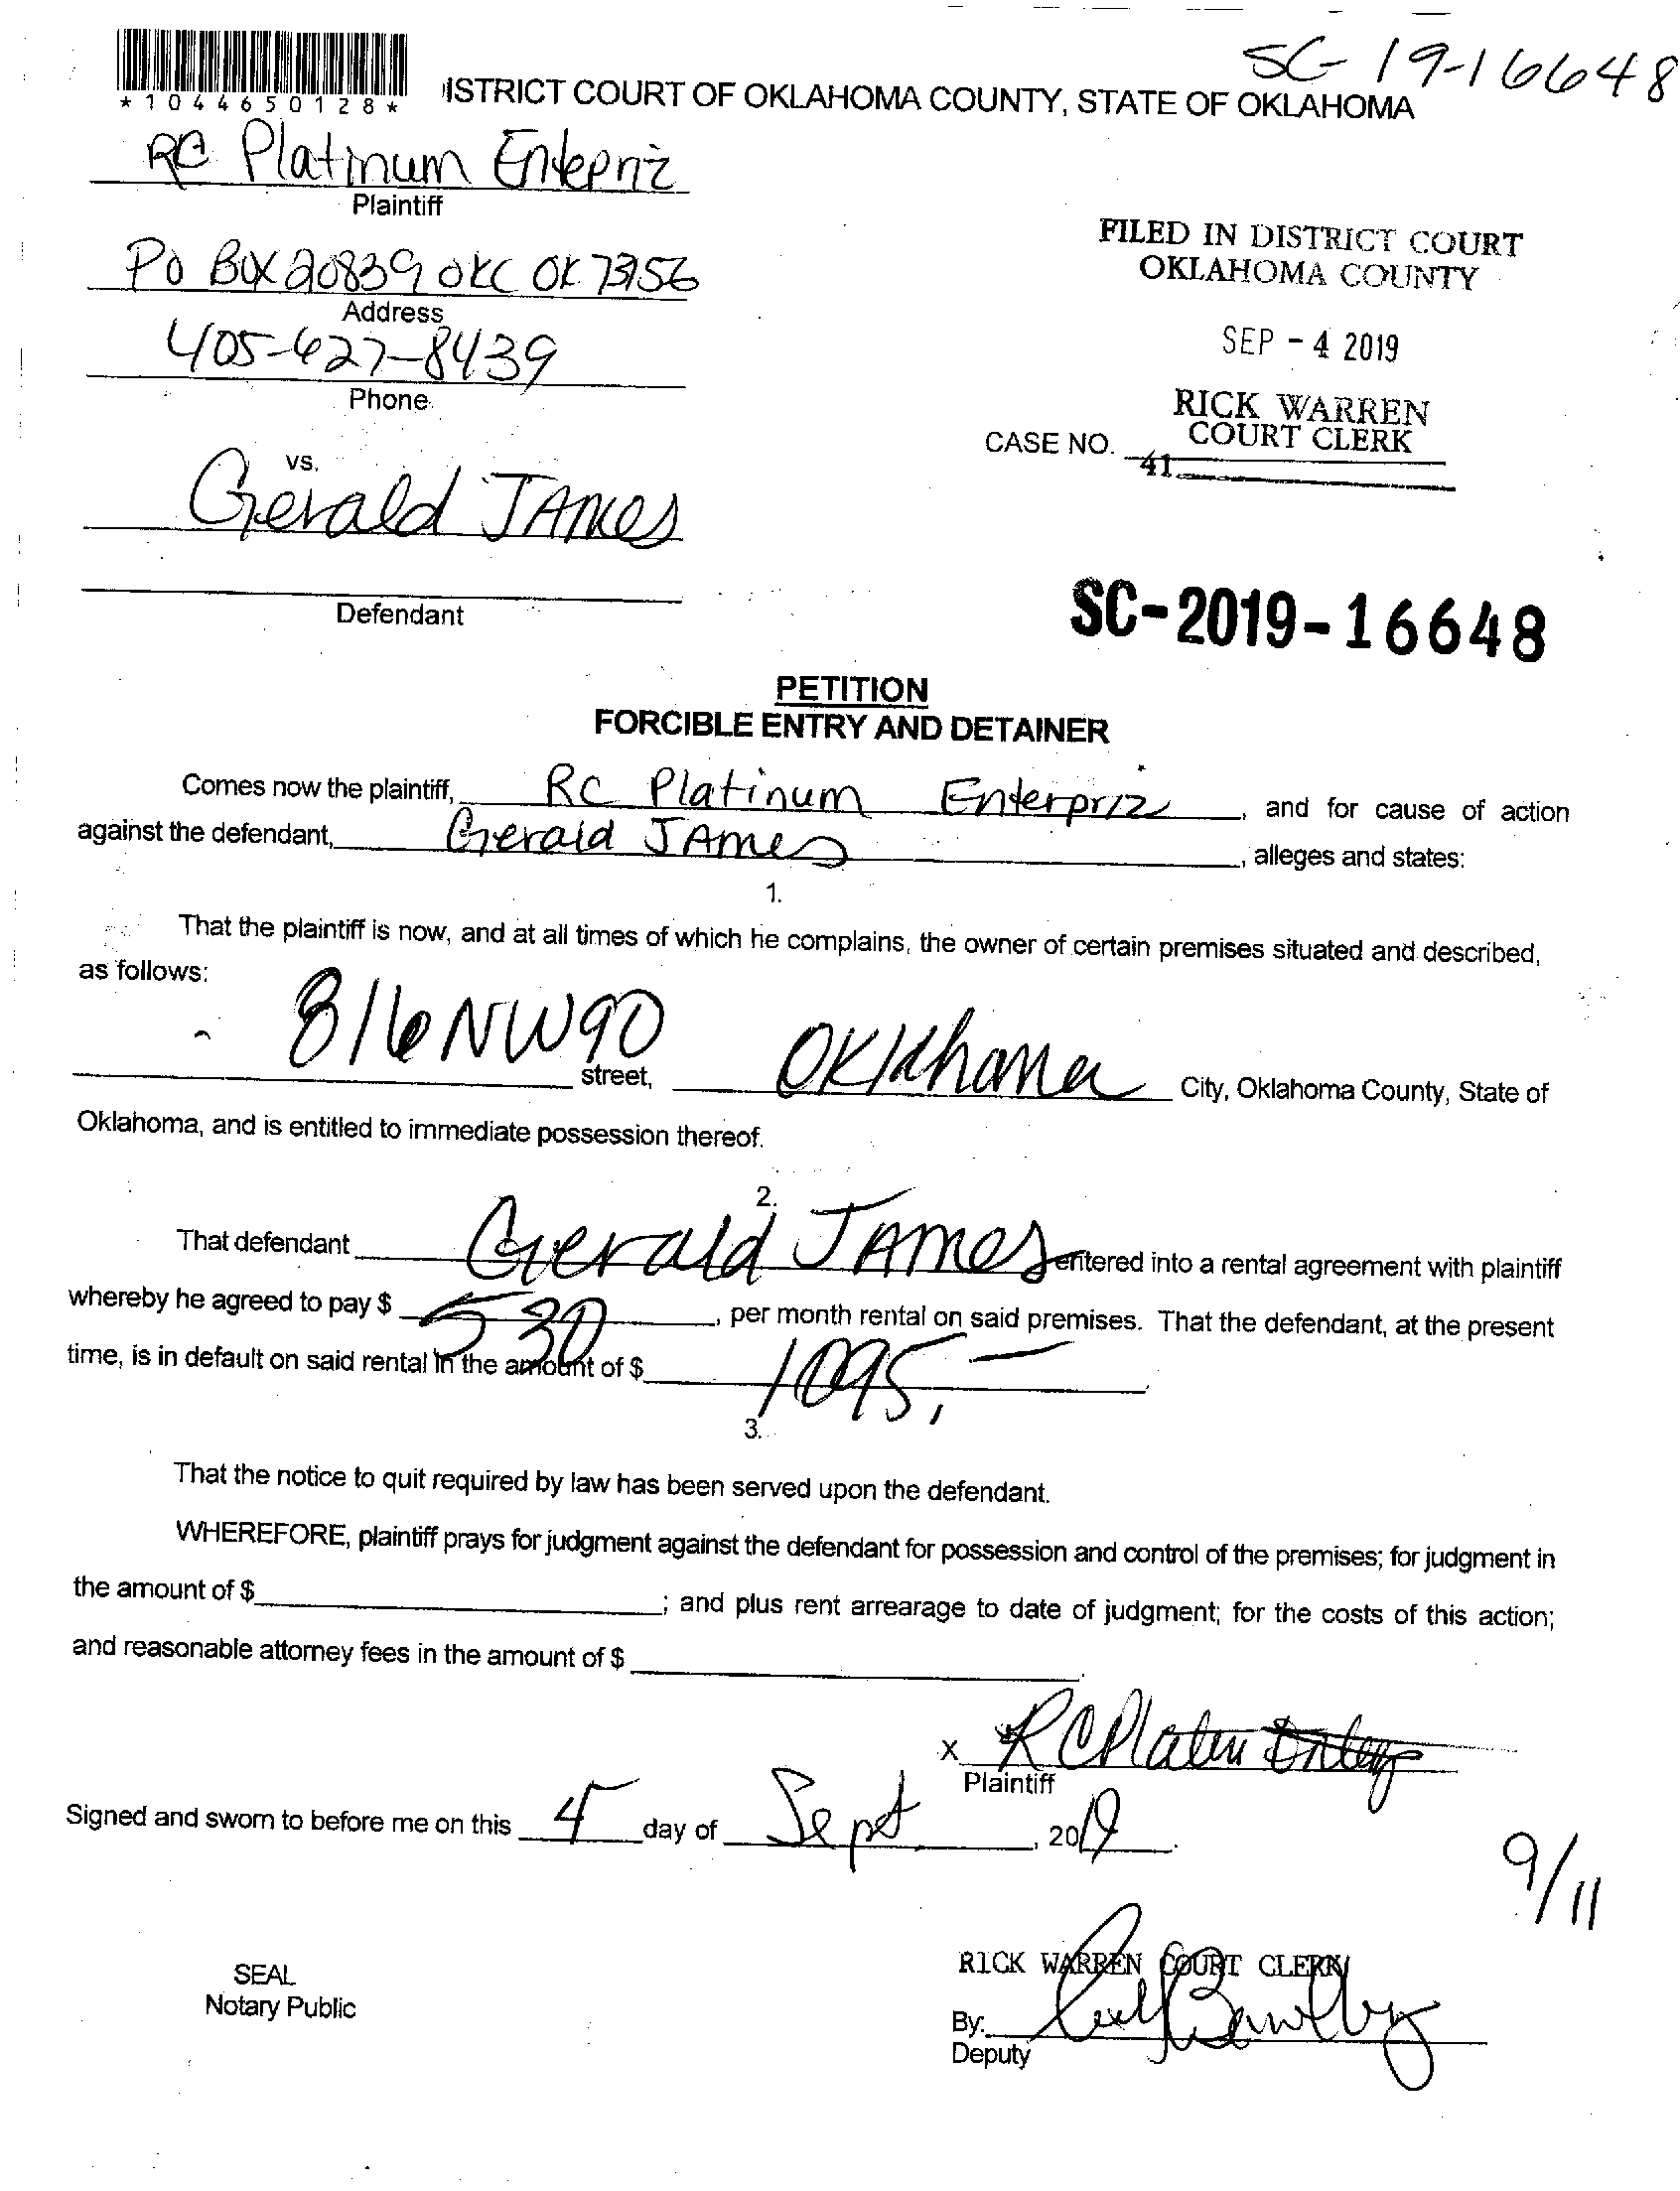 SC-19-16648
*1044650128*
ISTRICT COURT OF OKLAHOMA COUNTY, STATE OF OKLAHOMA
RC Platinum Entepriz
Plaintiff
PO BOX 20839 OKC OK 73156
Address
405-627-8439
Phone
vs.
Gerald JAmes
Defendant
FILED IN DISTRICT COURT
OKLAHOMA COUNTY
SEP - 4 2019
RICK WARREN
COURT CLERK
CASE NO.
41
SC-2019-16648
PETITION
FORCIBLE ENTRY AND DETAINER
Comes now the plaintiff, RC Platinum Enterpriz, and for cause of action
against the defendant, Gerald JAmes, alleges and states:
1.
That the plaintiff is now, and at all times of which he complains, the owner of certain premises situated and described,
as follows:
816 NW 90 street, Oklahoma City, Oklahoma County, State of
Oklahoma, and is entitled to immediate possession thereof.
2.
That defendant Gerald JAmes entered into a rental agreement with plaintiff
whereby he agreed to pay $ 530, per month rental on said premises. That the defendant, at the present
time, is in default on said rental in the amount of $ 1095,—
3.
That the notice to quit required by law has been served upon the defendant.
WHEREFORE, plaintiff prays for judgment against the defendant for possession and control of the premises; for judgment in
the amount of $; and plus rent arrearage to date of judgment; for the costs of this action;
and reasonable attorney fees in the amount of $.
X RC Platin
Plaintiff
Signed and sworn to before me on this 4 day of Sept, 2019.
9/11
SEAL
Notary Public
RICK WARREN COURT CLERK
By:
Deputy